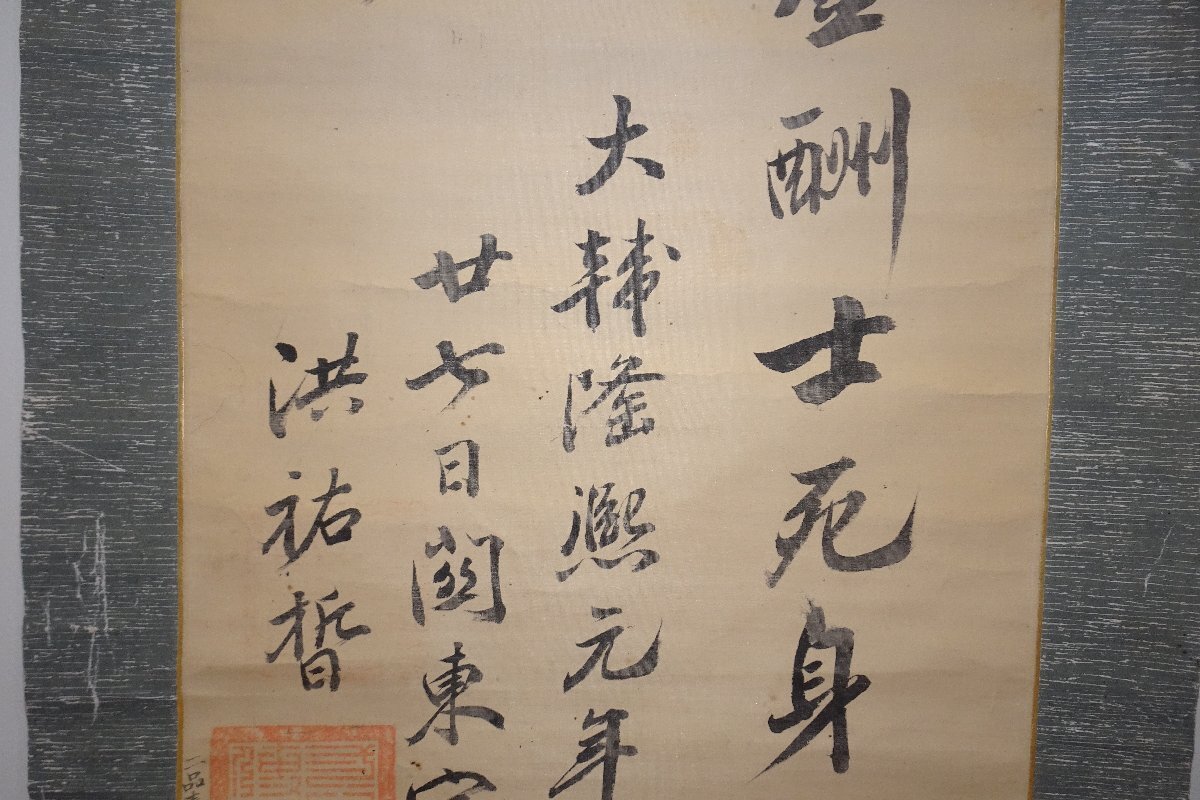 酬士死身
大韓隆熙元年
廿七日關東
洪祐晳
品